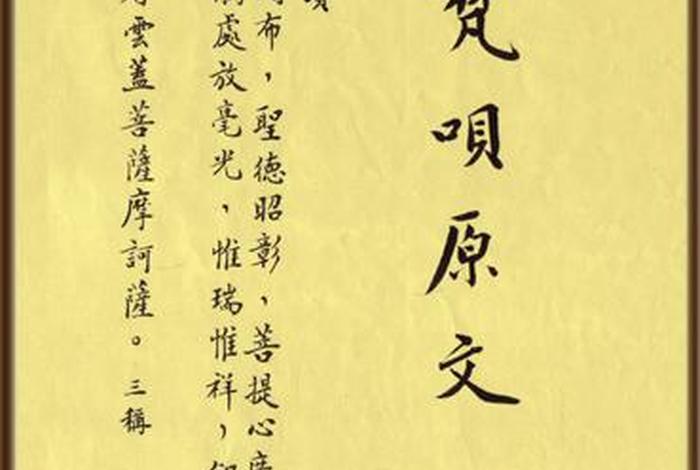 梵唄原文
布，聖德昭彰，菩提心
處放毫光，惟瑞惟祥，
雲蓋菩薩摩訶薩。三稱